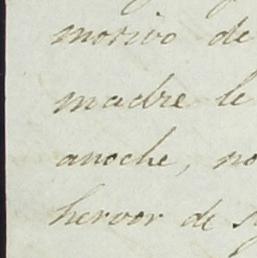 motivo de
madre le
anoche, no
hervor de s